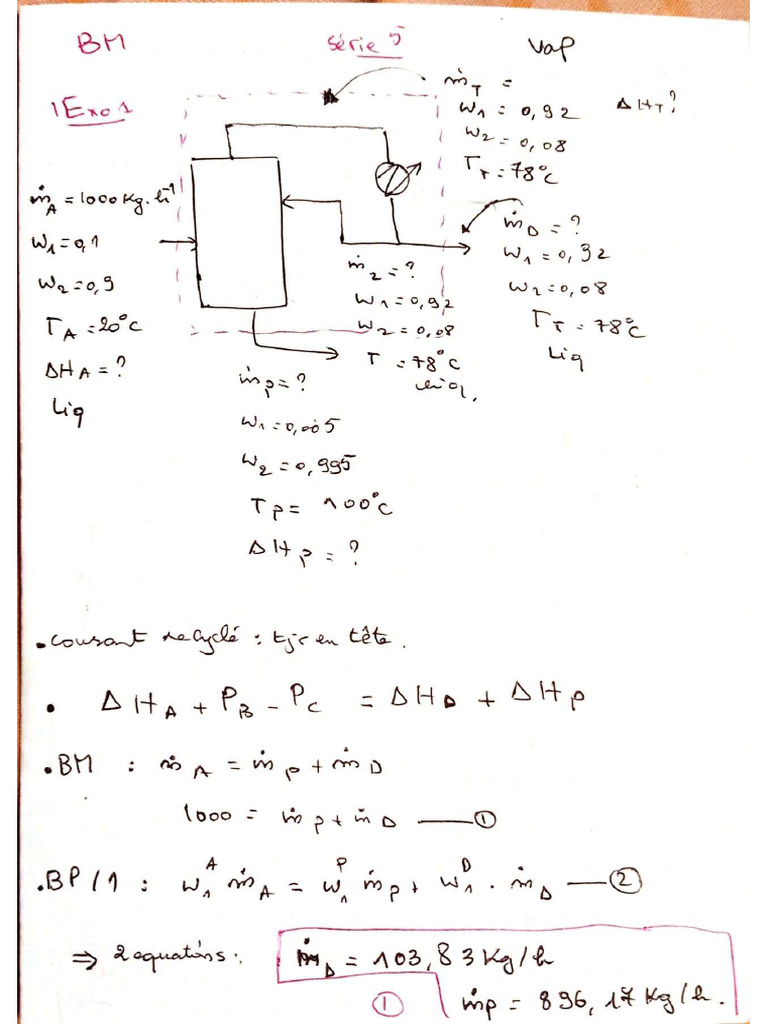 BM
série 5
Vap
1 Exo 1
ṁ_T =
w₁ = 0,92
w₂ = 0,08
T_T = 78°C
ΔH_T ?
ṁ_A = 1000 Kg.h⁻¹
w₁ = 0,1
w₂ = 0,9
T_A = 20°C
ΔH_A = ?
Liq
ṁ_2 = ?
w₁ = 0,92
w₂ = 0,08
T = 78°C
liq.
ṁ_D = ?
w₁ = 0,92
w₂ = 0,08
T_T = 78°C
Liq
ṁ_p = ?
w₁ = 0,005
w₂ = 0,995
T_p = 100°C
ΔH_p = ?
• courant recyclé : tjr en tête.
• ΔH_A + P_B - P_C = ΔH_D + ΔH_p
• BM : ṁ_A = ṁ_p + ṁ_D
1000 = ṁ_p + ṁ_D — ①
• BP/1 : w₁^A ṁ_A = w₁^P ṁ_p + w₁^D . ṁ_D — ②
⇒ 2 equations : ṁ_D = 103,83 Kg/h
① ṁp = 896,17 Kg/h.